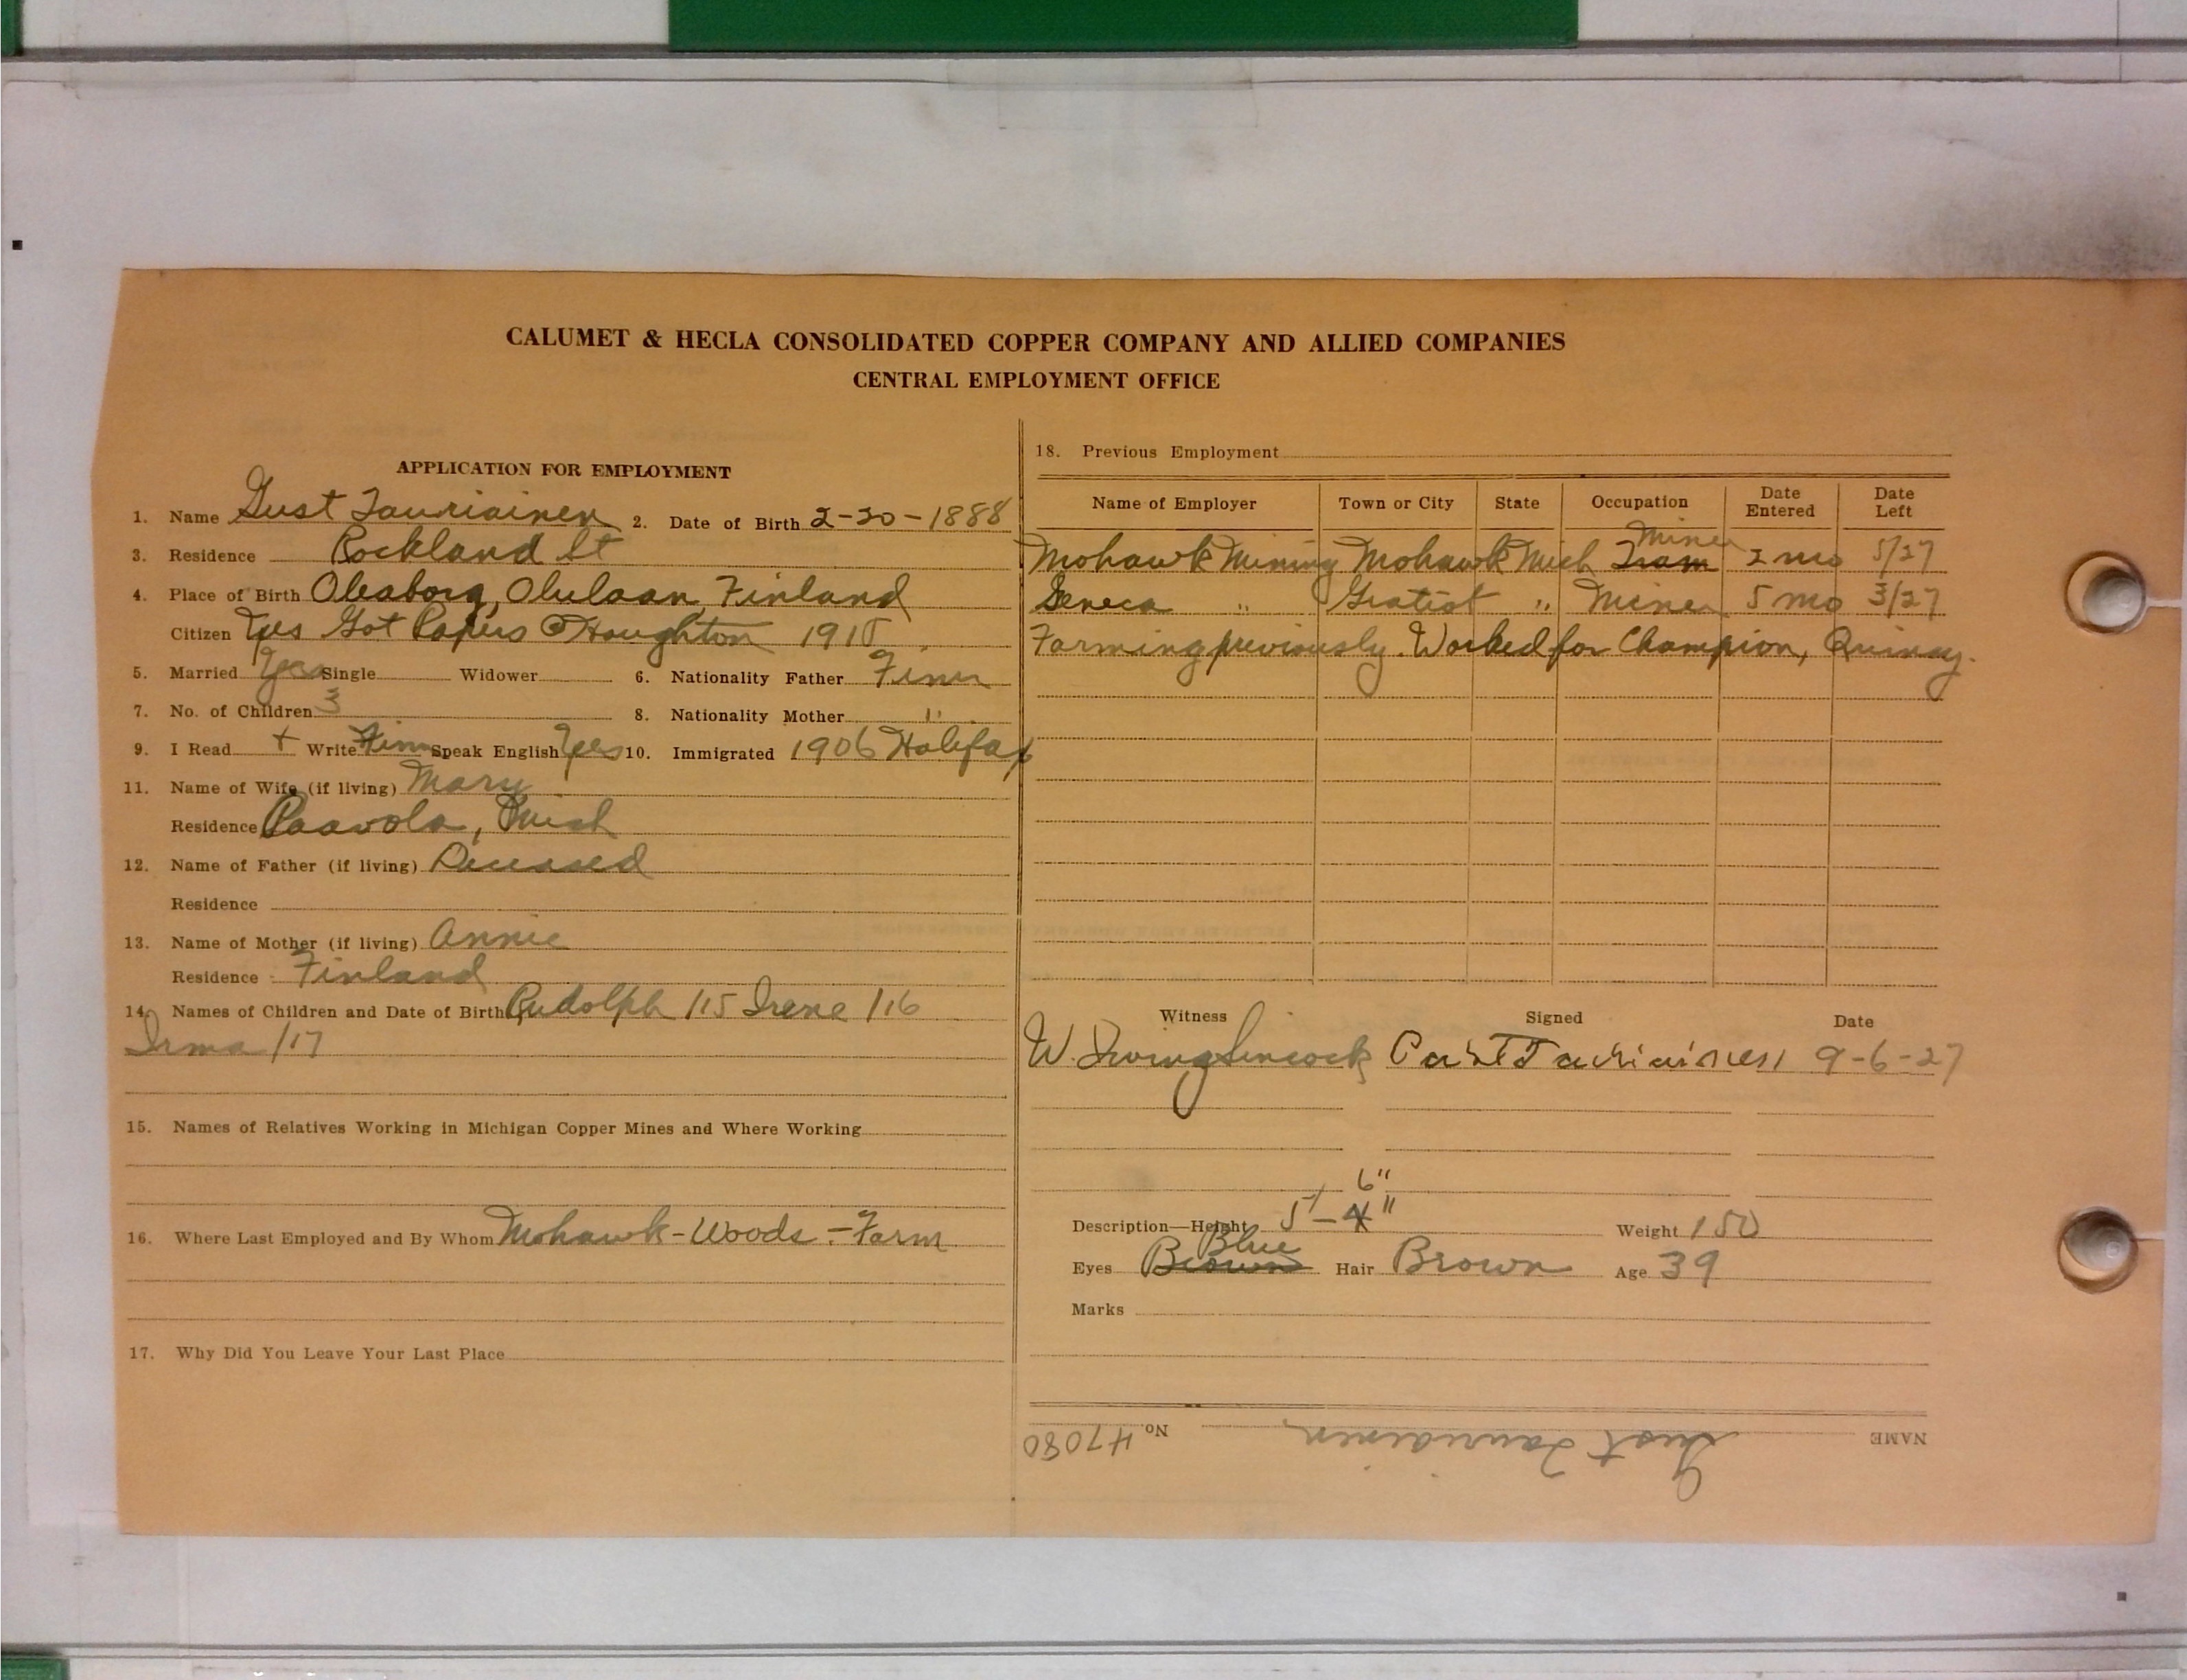 CALUMET & HECLA CONSOLIDATED COPPER COMPANY AND ALLIED COMPANIES
CENTRAL EMPLOYMENT OFFICE
APPLICATION FOR EMPLOYMENT
1. Name Gust Tauriainen 2. Date of Birth 2-20-1888
3. Residence Rockland St
4. Place of Birth Oleaborg, Olulaan, Finland
Citizen Yes Got Papers @ Houghton 1910
5. Married Yes Single Widower 6. Nationality Father Finn
7. No. of Children 3 8. Nationality Mother "
9. I Read + Write Finn Speak English Yes 10. Immigrated 1906 Halifax
11. Name of Wife (if living) Mary
Residence Paavola, Mich
12. Name of Father (if living) Deceased
Residence
13. Name of Mother (if living) Annie
Residence Finland
14. Names of Children and Date of Birth Rudolph /15 Irene /16
Irma /17
15. Names of Relatives Working in Michigan Copper Mines and Where Working
16. Where Last Employed and By Whom Mohawk - Woods - Farm
17. Why Did You Leave Your Last Place
18. Previous Employment
Name of Employer Town or City State Occupation Date Entered Date Left
Miner
Mohawk Mining Mohawk Mich Tram 2 mo 5/27
Seneca " Gratiot " Miner 5 mo 3/27
Farming previously. Worked for Champion, Quincy.
Witness Signed Date
W. Irving Sincock Tauriainen 9-6-27
6"
Description—Height 5'-4" Weight 150
Blue
Eyes Brown Hair Brown Age 39
Marks
NAME Gust Tauriainen No. 47080